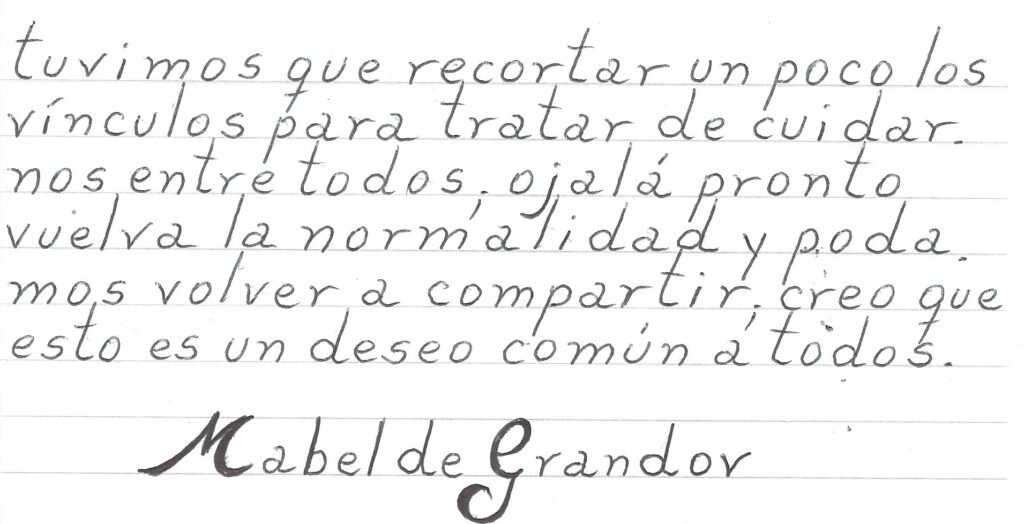 tuvimos que recortar un poco los
vínculos para tratar de cuidar.
nos entre todos. ojalá pronto
vuelva la normalidad y poda.
mos volver a compartir. creo que
esto es un deseo común a todos.
Mabel de Grandov